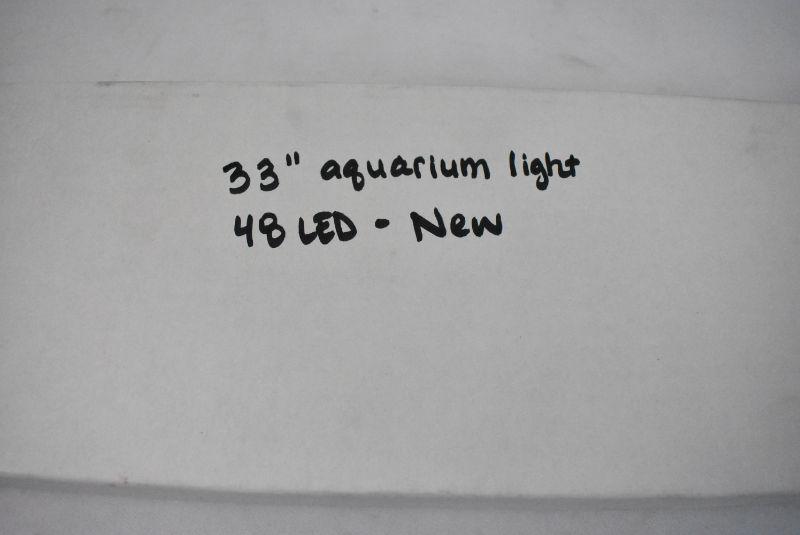 33" aquarium light
48 LED - New